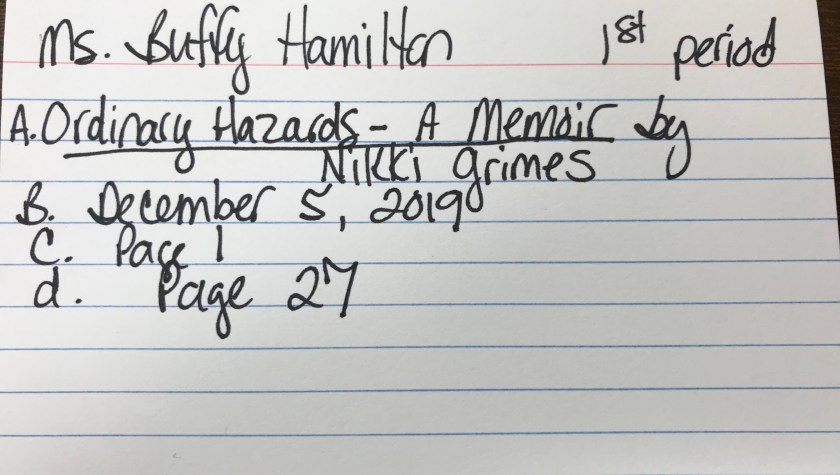 Ms. Buffy Hamilton 1st period
A. Ordinary Hazards - A Memoir by
Nikki Grimes
B. December 5, 2019
C. Page 1
d. Page 27